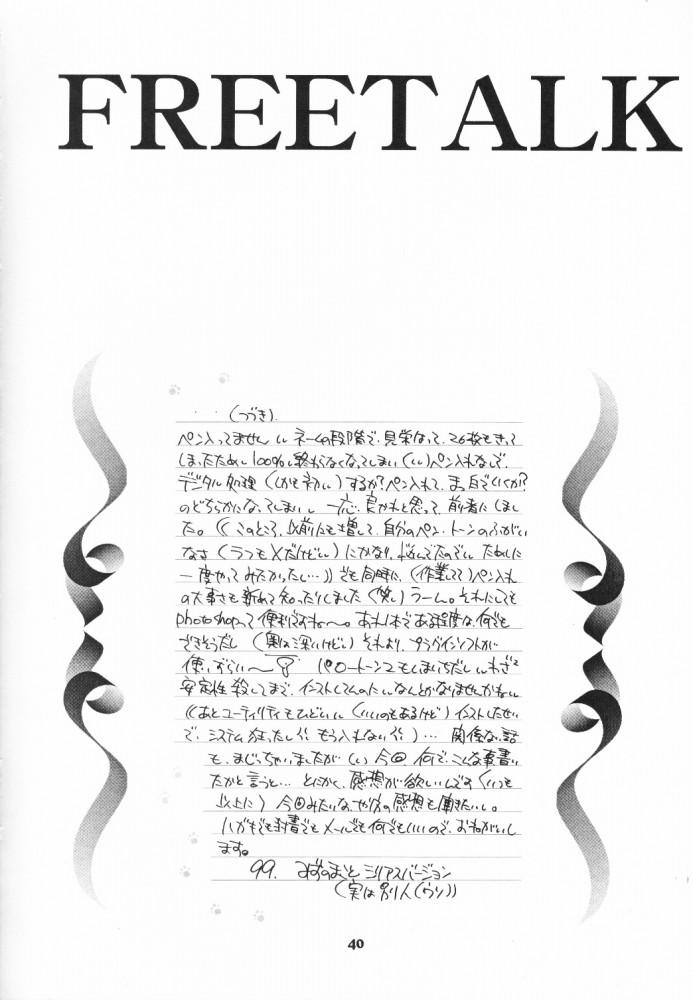 FREETALK
・・(つづき)。
ペン入ってません ネームの段階で、見栄なって、26枚もきって
しまったために100%終わらなくなってしまい(い)ペン入れなしで、
デジタル処理(しかも初)するか?ペン入れて、まっ白でいくか?
のどちらかになってしまいし 一応、良かれと思って、前者にしまし
た。(このところ、以前にも増して、自分のペン・トーンのふがい
なさ(うつもダだけど)にかなり、悩んでたので ために
一度やってみたかったし…))でも同時に、(作業してて)ペン入れ
の大事さも新めて知ったりしました(笑)うーん。それにしても
photoshopって便利ですね〜。あれ1本である程度は何でも
できそうだし(奥は深いけど)それより、プラグインソフトが
使いづらい〜 パロートーンとてもしまいちだし わざと
安定性殺してまで、インストしてんのに なんとかなりませんかね
((あとユーティリティもひどい(いいのもあるけど)インストしたせい
で、システム狂ったし もう入れない)… 関係ない話
も、まじっちゃいましたが(い)今回 何で、こんな事書い
たかと言うと… とにかく、感想が欲しいんです(いつも
以上に)今回みたいなやり方の感想も聞きたいし。
ハガキでも封書でもメールでも何でもいいので、おねがいし
ます。
99. みずのまこと シリアスバージョン
(実は別人(ウソ))
40